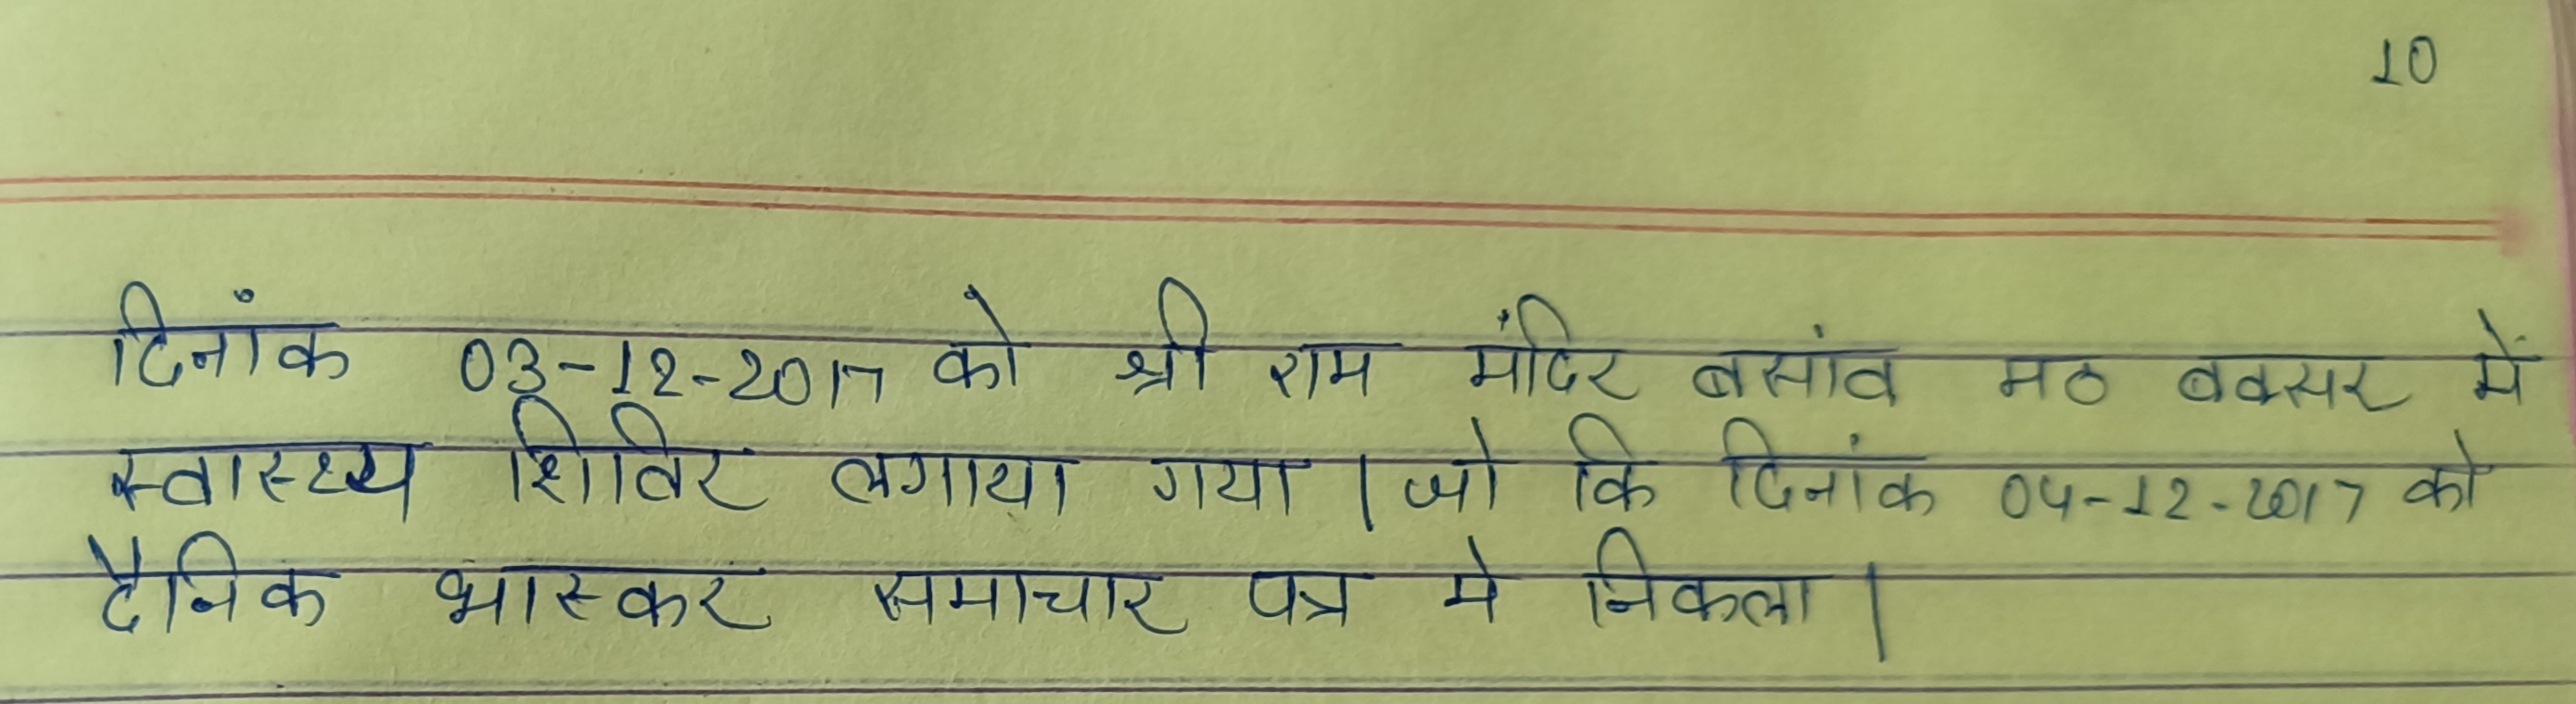 10
दिनांक 03-12-2017 को श्री राम मंदिर बसांव मठ बक्सर में
स्वास्थ्य शिविर लगाया गया | जो कि दिनांक 04-12-2017 को
दैनिक भास्कर समाचार पत्र मे निकला |